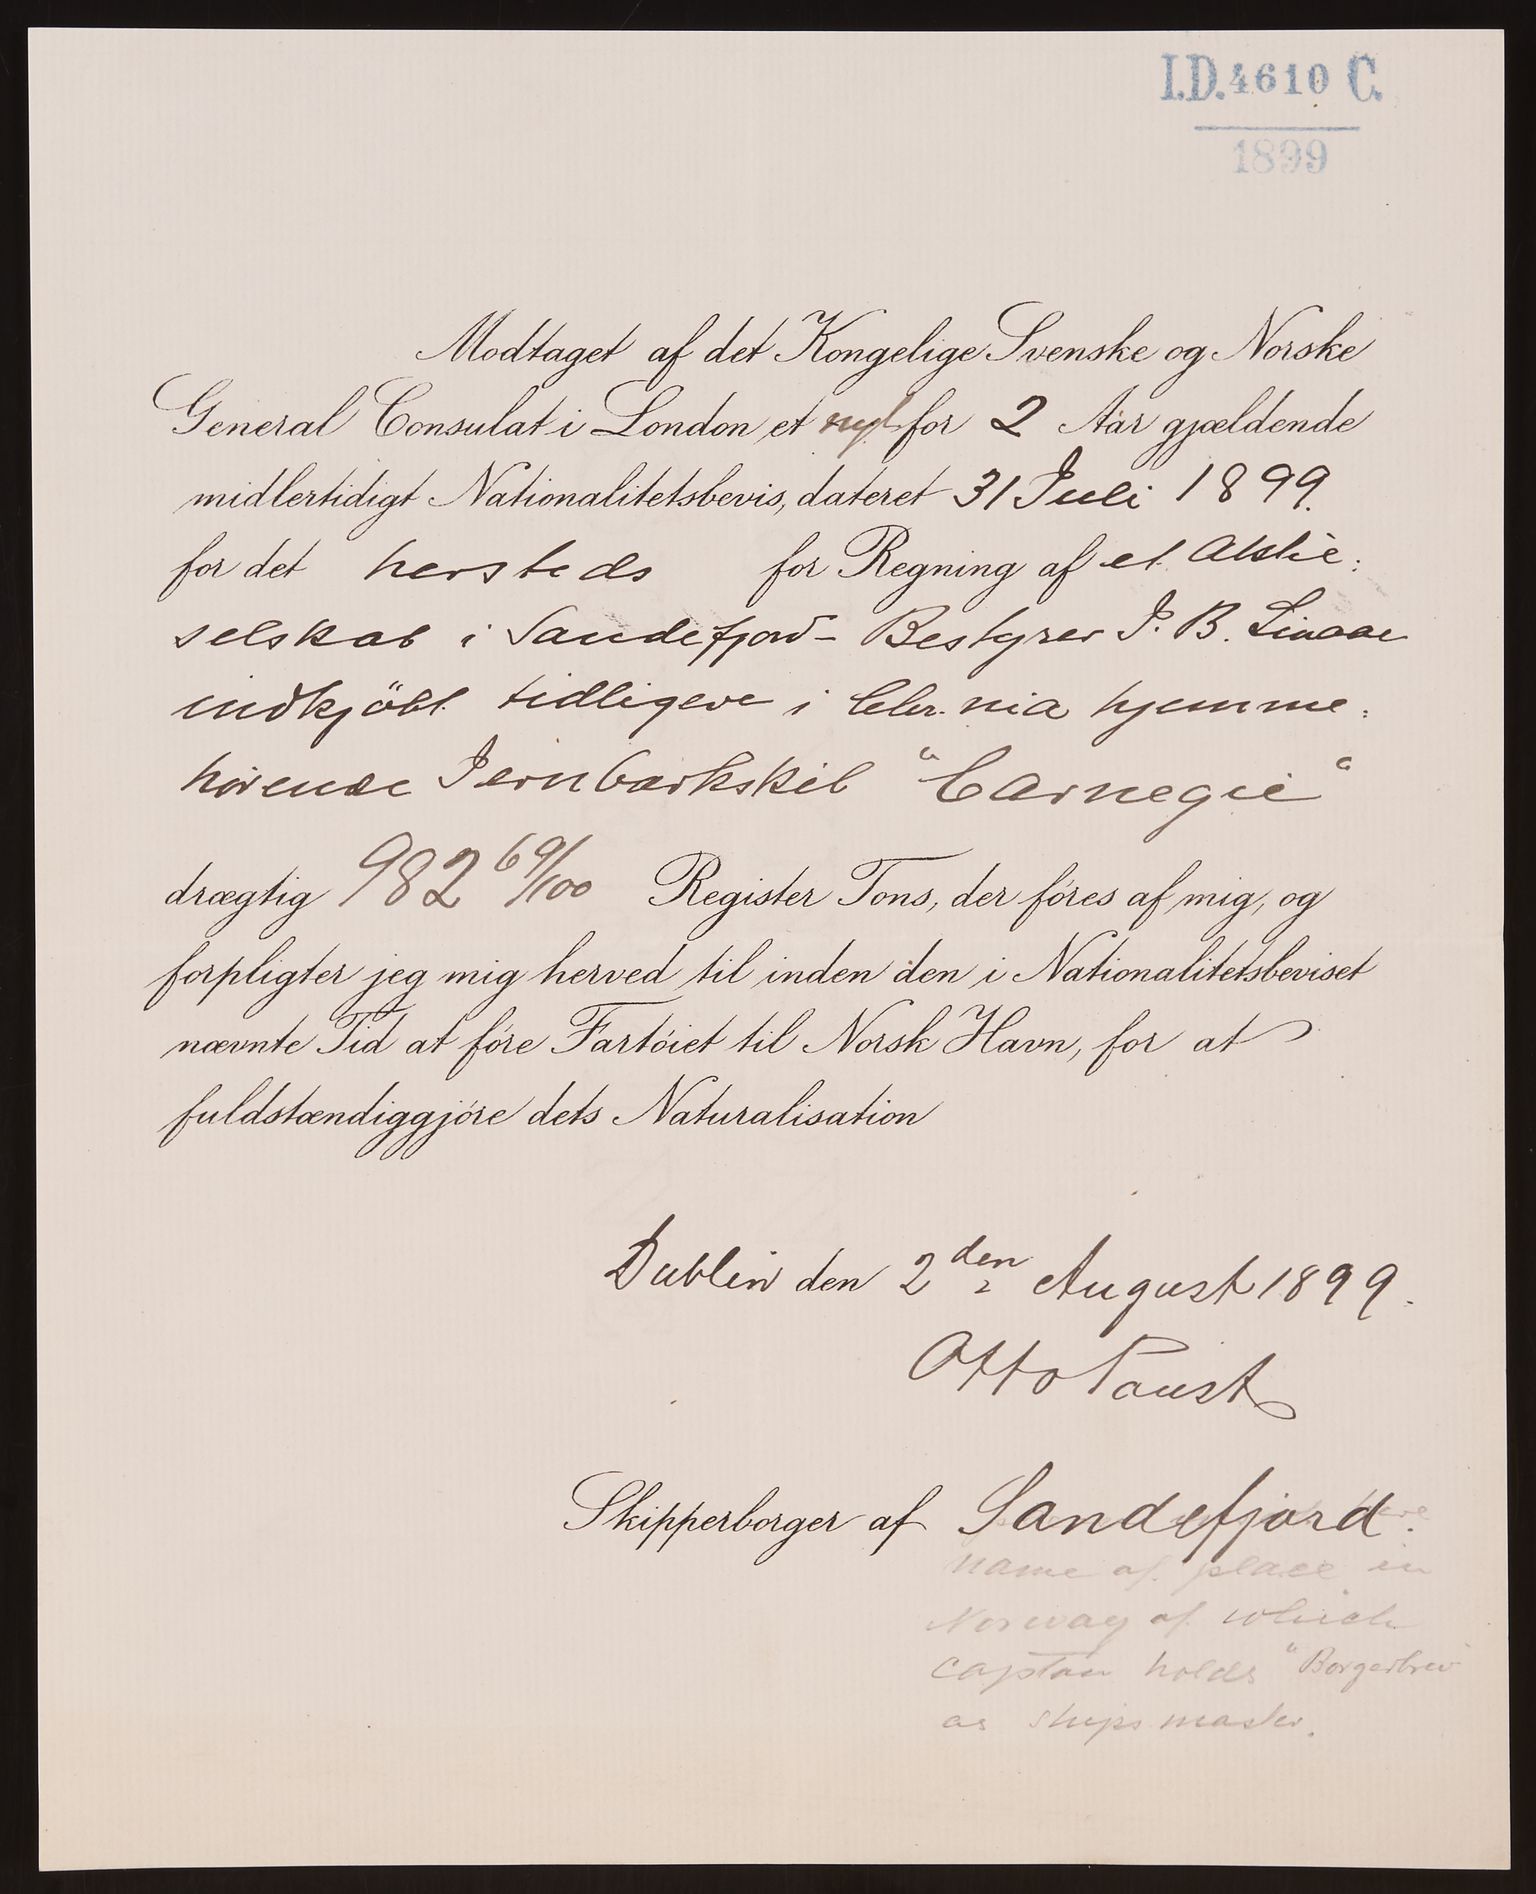 I.D. 4610 C.
1899
Modtaget af det Kongelige Svenske og Norske
General Consulat i London et nyt for 2 Aar gjældende
midlertidigt Nationalitetsbevis, dateret 31 Juli 1899.
for det hersteds for Regning af et Aktie:
selskab i Sandefjord - Bestyrer J. B. Linaae
indkjöbt tidligere i Chr.nia hjemme:
hörende Jernbarkskib "Carnegie"
drægtig 982 69/100 Register Tons, der föres af mig, og
forpligter jeg mig herved til inden den i Nationalitetsbeviset
nævnte Tid at före Fartöiet til Norsk Havn, for at
fuldstændiggjöre dets Naturalisation
Dublin den 2den August 1899.
Otto Paust
Skipperborger af Sandefjord.
name of place in
Norway of which
captain holds "Borgerbrev"
as ships master.